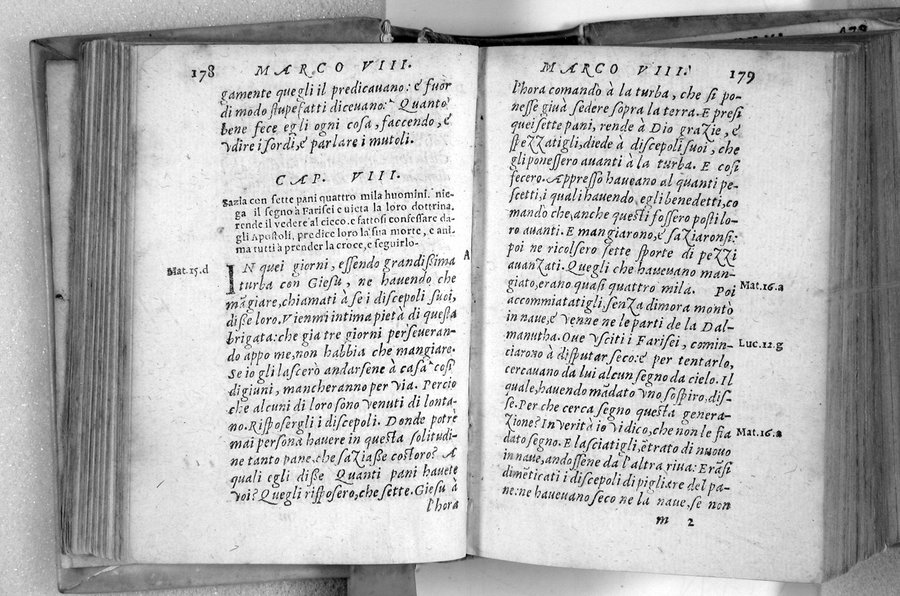 178 MARCO VIII.
gamente quegli il predicauano: é fuor
di modo stupefatti diceuano: Quanto
bene fece egli ogni cosa, faccendo, é
vdire i sordi, é parlare i mutoli.
CAP. VIII.
Sazia con sette pani quattro mila huomini. nie-
ga il segno à Farisei e uieta la loro dottrina.
rende il vedere al cieco. e fattosi confessare da-
gli Apostoli, predice loro la sua morte, e ani-
ma tutti à prender la croce, e seguirlo.
Mat. 15. d
IN quei giorni, essendo grandissima
turba con Giesu, ne hauendo che
mãgiare, chiamati à se i discepoli suoi,
disse loro. Vienmi intima pietà di questa
brigata: che gia tre giorni perseueran-
do appo me, non habbia che mangiare.
Se io gli lascerò andarsene à casa cosi
digiuni, mancheranno per via. Percio
che alcuni di loro sono venuti di lonta-
no. Risposergli i discepoli. Donde potrè
mai persona hauere in questa solitudi-
ne tanto pane, che saziasse costoro? A
quali egli disse Quanti pani hauete
voi? Quegli risposero, che sette. Giesu à
l'hora
A
MARCO VIII. 179
l'hora comandò à la turba, che si po-
nesse giuà sedere sopra la terra. E presi
quei sette pani, rende à Dio grazie, é
spezzatigli, diede à discepoli suoi, che
gli ponessero auanti à la turba. E cosi
fecero. Appresso haueano al quanti pe-
scetti, i quali hauendo egli benedetti, co
mando che, anche questi fossero posti lo-
ro auanti. E mangiarono, é saziaronsi:
poi ne ricolsero sette sporte di pezzi
auanzati. Quegli che haueuano man-
giato, erano quasi quattro mila. Poi
Mat. 16. a
accommiatatigli, senza dimora montò
in naue, é venne ne le parti de la Dal-
manutha. Oue vsciti i Farisei, comin-
Luc. 12. g
ciarono à disputar seco: é per tentarlo,
cercauano da lui alcun segno da cielo. Il
quale, hauendo mãdato vno sospiro, dis-
se. Per che cerca segno questa genera-
zione? In verità io vi dico, che non le fia
Mat. 16. a
dato segno. E lasciatigli, ẽtrato di nuouo
in naue, andossene da l'altra riua: Erãsi
dimẽticati i discepoli di pigliare del pa-
ne: ne haueuano seco ne la naue, se non
m 2